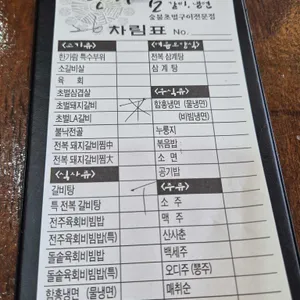 숯불초벌구이전문점
차림표 No.
<고기류>
한가람 특수부위
소갈비살
육 회
초벌삼겹살
초벌돼지갈비
초벌LA갈비
불낙전골
전복 돼지갈비찜中
전복 돼지갈비찜大
<식사류>
갈비탕
특 전복 갈비탕
전주육회비빔밥
전주육회비빔밥(특)
돌솥육회비빔밥
돌솥육회비빔밥(특)
함흥냉면 (물냉면)
전복 삼계탕
삼 계 탕
함흥냉면 (물냉면)
(비빔냉면)
누룽지
볶음밥
소 면
공기밥
<주류>
소 주
맥 주
산사춘
백세주
오디주 (뽕주)
매취순